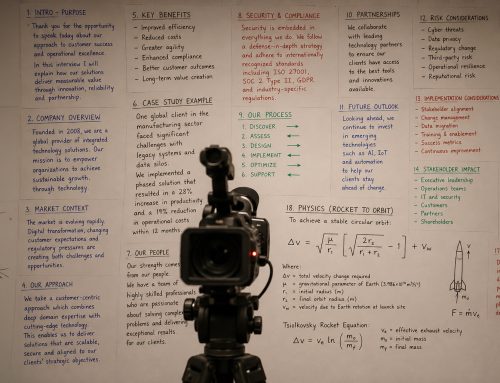 1. INTRO - PURPOSE
Thank you for the opportunity
to speak today about our
approach to customer success
and operational excellence.
In this interview I will
explain how our solutions
deliver measurable value
through innovation, reliability
and partnership.
2. COMPANY OVERVIEW
Founded in 2008, we are a
global provider of integrated
technology solutions. Our
mission is to empower
organizations to achieve
sustainable growth
through technology.
3. MARKET CONTEXT
The market is evolving rapidly.
Digital transformation, changing
customer expectations and
regulatory pressures are
creating both challenges and
opportunities.
4. OUR APPROACH
We take a customer-centric
approach which combines
deep domain expertise with
cutting-edge technology.
This enables us to deliver
solutions that are scalable,
secure and aligned to our
clients' strategic objectives.
5. KEY BENEFITS
- Improved efficiency
- Reduced costs
- Greater agility
- Enhanced compliance
- Better customer outcomes
- Long-term value creation
6. CASE STUDY EXAMPLE
One global client in the
manufacturing sector
faced significant
challenges with
legacy systems and
data silos.
We implemented a
phased solution that
resulted in a 28%
increase in productivity
and a 19% reduction
in operational costs
within 12 months
7. OUR PEOPLE
Our strength comes
from our people.
We have a team of
highly skilled professionals
who are passionate
about solving complex
problems and delivering
exceptional results
for our clients.
8. SECURITY & COMPLIANCE
Security is embedded in
everything we do. We follow
a defense-in-depth strategy
and adhere to internationally
recognized standards
including ISO 27001,
SOC 2 Type II, GDPR
and industry-specific
regulations.
9. OUR PROCESS
1. DISCOVER →
2. ASSESS ←
3. DESIGN →
4. IMPLEMENT ←
5. OPTIMIZE →
6. SUPPORT ←
10. PARTNERSHIPS
We collaborate
with leading
technology partners
to ensure our
clients have access
to the best tools
and innovations
available.
11. FUTURE OUTLOOK
Looking ahead, we
continue to invest
in emerging
technologies
such as AI, IoT
and automation
to help our
clients stay
ahead of change.
12. RISK CONSIDERATIONS
- Cyber threats
- Data privacy
- Regulatory change
- Third-party risk
- Operational resilience
- Reputational risk
13. IMPLEMENTATION CONSIDERATIONS
- Stakeholder alignment
- Change management
- Data migration
- Training & enablement
- Success metrics
- Continuous improvement
14. STAKEHOLDER IMPACT
- Executive leadership
- Operations teams
- IT and security
- Customers
- Partners
- Shareholders
18. PHYSICS (ROCKET TO ORBIT)
To achieve a stable circular orbit:
Δv = √(μ/r₁) [√(2r₂/(r₁ + r₂)) - 1] + v_w
Where:
Δv = total velocity change required
r₁ = initial radius (m)
r₂ = final orbit radius (m)
Tsiolkovsky Rocket Equation:
Δv = vₑ ln (m₀/m_f)
vₑ = effective exhaust velocity
m₀ = initial mass
m_f = final mass
F = ṁvₑ